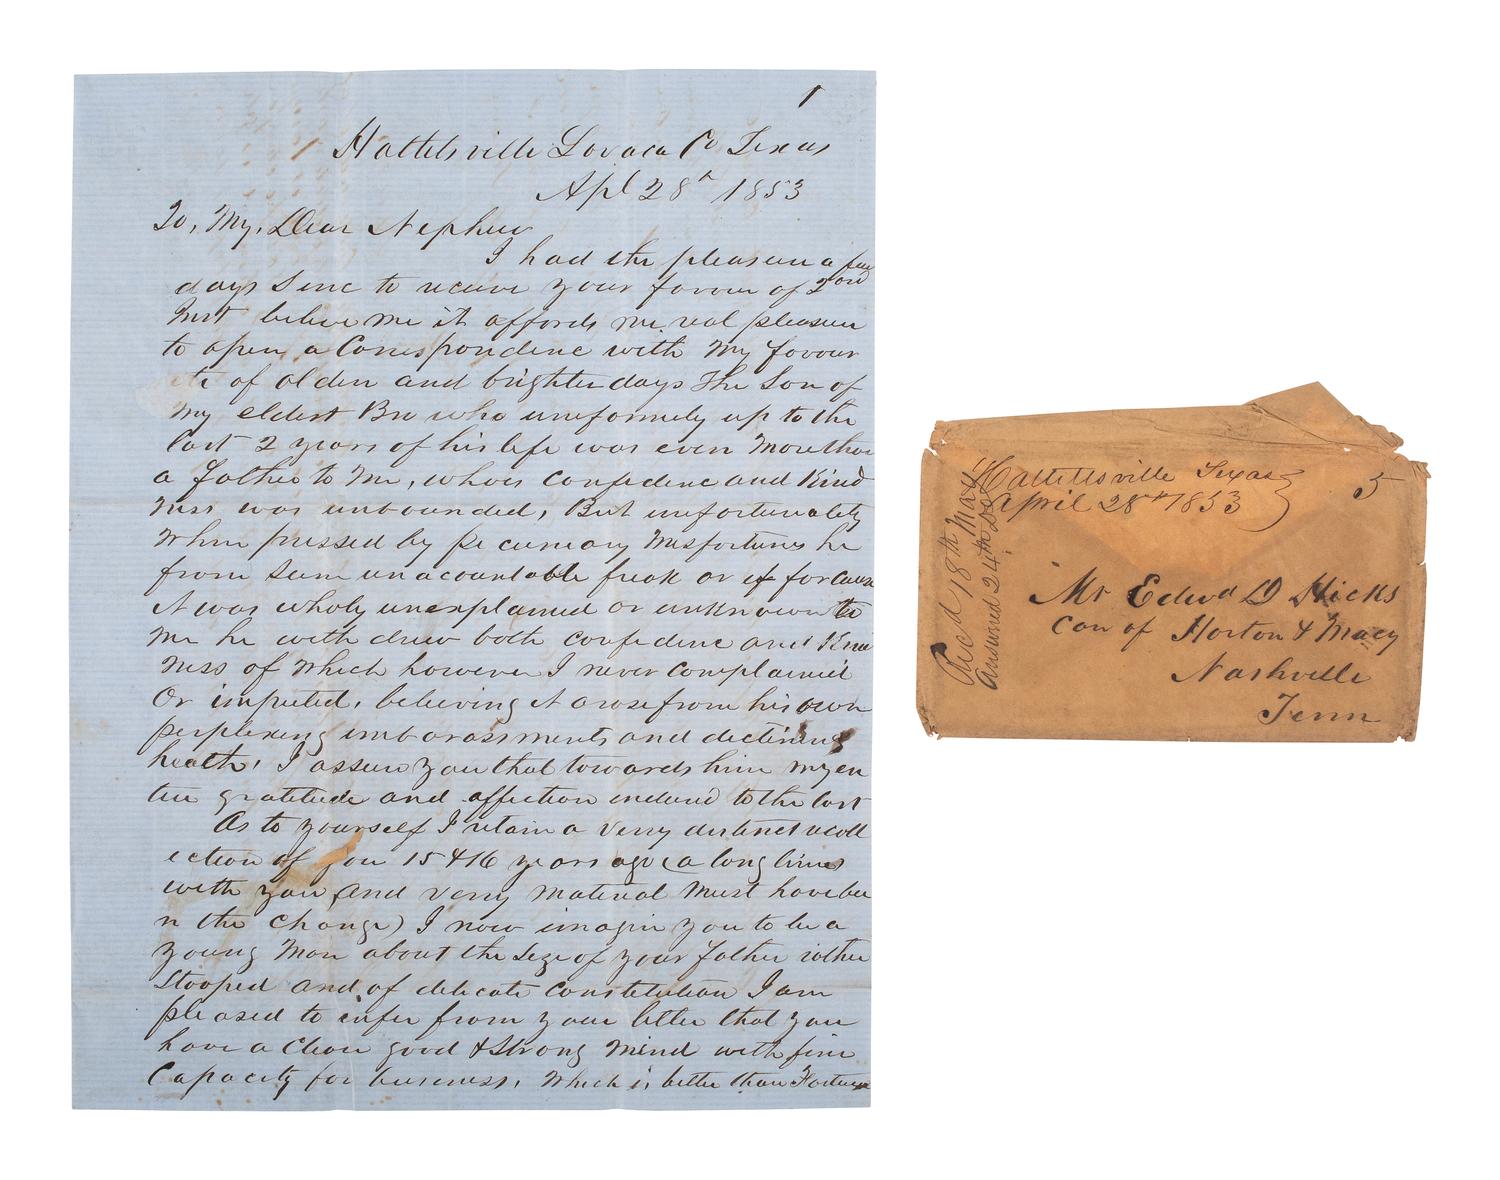 1
Hallettsville Lavaca Co Texas
Apl 28th 1853
To, My, Dear Nephew
I had the pleasure a few
days Sinc to receive your favour of 2ond
Inst believe me it affords me real pleasure
to open a Correspondence with My favour
ite of olden and brighter days The Son of
My eldest Bro who uniformely up to the
last 2 years of his life was even More than
a father to Me, whoes Confidence and Kind
ness was unbounded, But unfortunately
When pressed by pe cuniary Misfortunes he
from Sum unacountable freak or if for cause
it was wholy unexplained or unknown to
Me he with drew both confidence and Kind
ness of Which however I never Complained
Or imputed, believing it arose from his own
perplexing imbarassments and declining
health, I assure you that towards him my en
tire gratitude and affection endured to the last
As to yourself I retain a very distinct recoll
ection of you 15 & 16 years ago (a long time
with you and very Material Must have bee
n the Change) I now imagin you to be a
young Man about the Size of your father rather
Stooped and of delicate Constitution I am
pleased to infer from your letter that you
have a Clear good & Strong Mind with fine
Capacity for business, Which is better than Fortune
Hallettsville Texas
April 28th 1853
5
Mr Edwd D Hicks
Car of Horton & Macy
Nashville
Tenn
Recd 18th May
Answered 24th Do